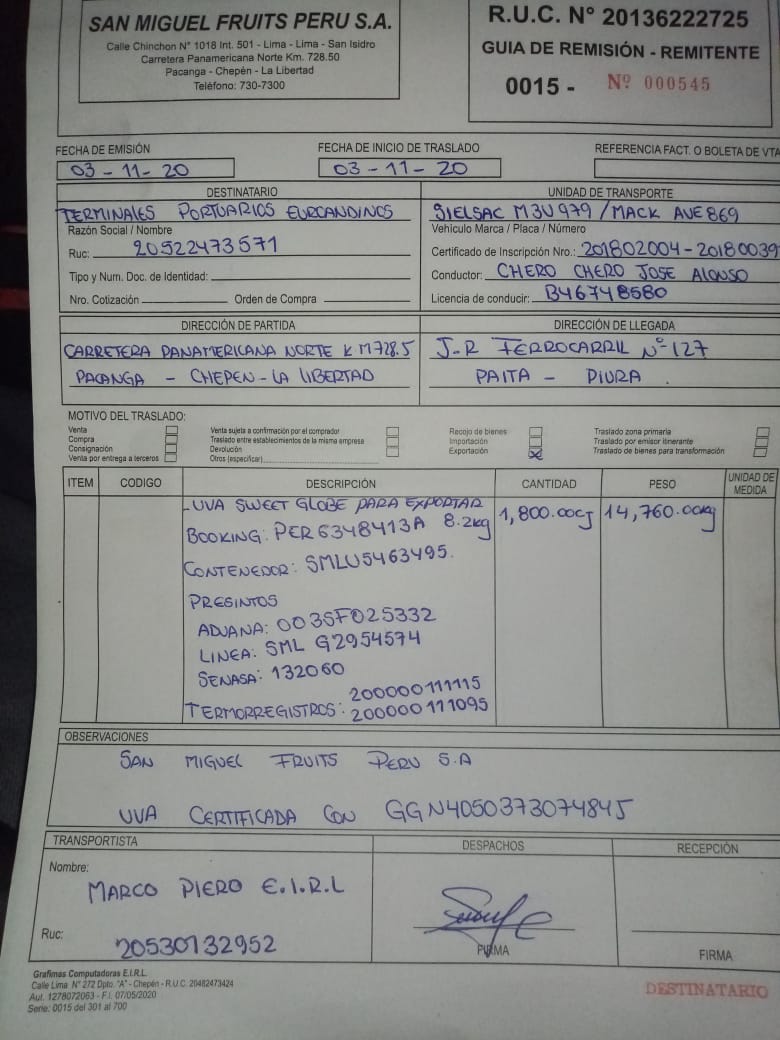 SAN MIGUEL FRUITS PERU S.A.
Calle Chinchon N° 1018 Int. 501 - Lima - Lima - San Isidro
Carretera Panamericana Norte Km. 728.50
Pacanga - Chepén - La Libertad
Teléfono: 730-7300
R.U.C. N° 20136222725
GUIA DE REMISIÓN - REMITENTE
0015 - Nº 000545
FECHA DE EMISIÓN
03-11-20
FECHA DE INICIO DE TRASLADO
03-11-20
REFERENCIA FACT. O BOLETA DE VTA
DESTINATARIO
TERMINALES PORTUARIOS EUROANDINOS
Razón Social / Nombre
Ruc: 20522473571
Tipo y Num. Doc. de Identidad:
Nro. Cotización Orden de Compra
UNIDAD DE TRANSPORTE
SIELSAC M3U979 / MACK AVE869
Vehiculo Marca / Placa / Número
Certificado de Inscripción Nro.: 201802004-20180039
Conductor: CHERO CHERO JOSE ALONSO
Licencia de conducir: B46748580
DIRECCIÓN DE PARTIDA
CARRETERA PANAMERICANA NORTE KM728.5
PACANGA - CHEPEN - LA LIBERTAD
DIRECCIÓN DE LLEGADA
J-R FERROCARRIL N°127
PAITA - PIURA.
MOTIVO DEL TRASLADO:
Venta
Compra
Consignación
Venta por entrega a terceros
Venta sujeta a confirmación por el comprador
Traslado entre establecimientos de la misma empresa
Devolución
Otros (especificar)
Recojo de bienes
Importación
Exportación X
Traslado zona primaria
Traslado por emisor itinerante
Traslado de bienes para transformación
ITEM CODIGO DESCRIPCIÓN CANTIDAD PESO UNIDAD DE MEDIDA
UVA SWEET GLOBE PARA EXPORTAR
BOOKING: PER6348413A 8.2kg 1,800.00CJ 14,760.00kg
CONTENEDOR: SMLU5463495.
PRESINTOS
ADUANA: 003SF025332
LINEA: SML G2954574
SENASA: 132060
200000111115
TERMORREGISTROS: 200000111095
OBSERVACIONES
SAN MIGUEL FRUITS PERU S.A
UVA CERTIFICADA CON GGN4050373074845
TRANSPORTISTA
Nombre:
MARCO PIERO E.I.R.L
Ruc: 20530132952
DESPACHOS
FIRMA
RECEPCIÓN
FIRMA
Grafimas Computadoras E.I.R.L.
Calle Lima N° 272 Dpto. "A" - Chepén - R.U.C. 20482473424
Aut. 1278072063 - F.I. 07/05/2020
Serie: 0015 del 301 al 700
DESTINATARIO